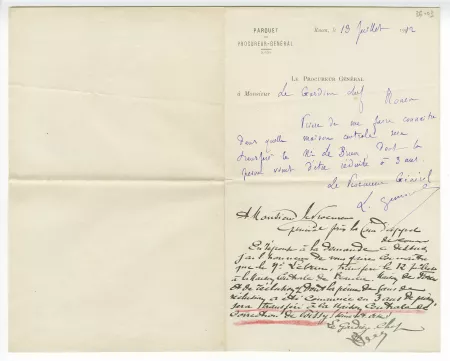 PARQUET
DU
PROCUREUR-GÉNÉRAL
Rouen, le 13 Juillet
LE PROCUREUR GÉNÉRAL
à Monsieur Le Gardien chef
Rouen
Prière de me faire connaître
dans quelle maison centrale sera
transféré le né Le Brun dont la
peine vient d'être réduite à 3 ans.
Le Procureur Général
A Monsieur le Procureur
Général près la Cour d'appel
de Rouen
En réponse à la demande ci-dessus,
j'ai l'honneur de vous faire connaître
que le né Lebrun, transféré le 12
à la Maison Centrale de
et de réclusion, dont la peine de
réclusion a été commuée en 3 ans de prison
sera transféré à la Maison Centrale de
Correction de Poissy
Le Gardien Chef